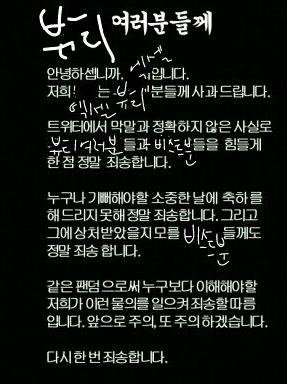 뷰티 여러분들께
안녕하셉니까. 엑셀입니다.
저희 엑셀는 뷰티 분들께 사과 드립니다.
트위터에서 막말과 정확하지 않은 사실로
뷰티여러분들과 비스트분들을 힘들게
한 점 정말 죄송합니다.
누구나 기뻐해야할 소중한 날에 축하 를
해 드리지 못해 정말 죄송합니다. 그리고
그에 상처받았을지 모를 비스트분들께도
정말 죄송 합니다.
같은 팬덤 으로써 누구보다 이해해야할
저희가 이런 물의를 일으켜 죄송할 따름
입니다. 앞으로 주의, 또 주의 하겠습니다.
다시 한 번 죄송합니다.